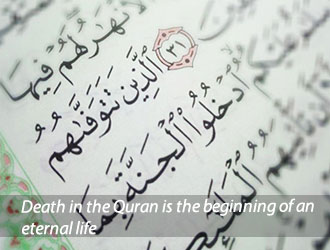 لَهُمْ فِيهَا
۳۱ ٱلَّذِينَ تَتَوَفَّىٰهُمُ
عَلَيْكُمُ ٱدْخُلُوا۟ ٱلْجَنَّةَ بِمَا
Death in the Quran is the beginning of an
eternal life